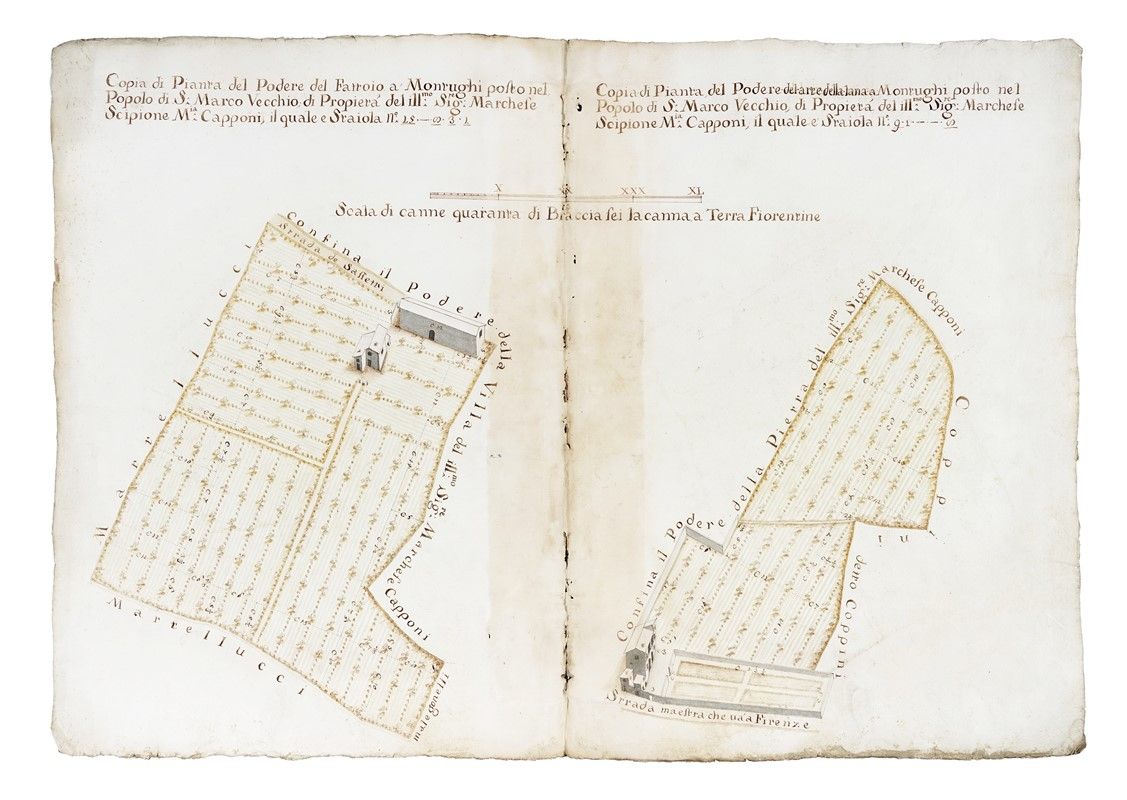 Copia di Pianta del Podere del Fattoio a Montughi posto nel
Popolo di S. Marco Vecchio, di Propietà del ill.mo Sig.re Marchese
Scipione M.ia Capponi, il quale e Staiola N.
Copia di Pianta del Podere del arte della lana a Montughi posto nel
Popolo di S. Marco Vecchio, di Propietà del ill.mo Sig.re Marchese
Scipione M.ia Capponi, il quale e Staiola N.
X XX XXX XL
Scala di canne quaranta di Braccia sei la canna a Terra Fiorentine
Confina il Podere della Villa del ill.mo Sig.re Marchese Capponi
Strada de Sassetti
Martellucci
Martellucci
Martellucci
Confina il Podere della Pietra del ill.mo Sig.re Marchese Capponi
Coppini
detto Coppini
Strada maestra che và a Firenze